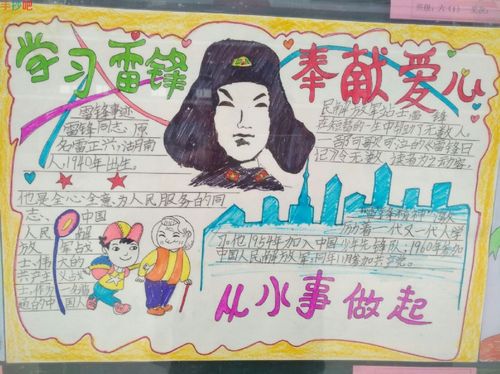 手抄吧
班级:六(1)
学习雷锋
奉献爱心
雷锋事迹
雷锋同志,原
名雷正兴,湖南
人,1940年出生。
他是全心全意为人民服务的同
志、中国
人民解
放军战
士、伟大的
共产主义战
民解放军战士雷锋
在短暂的一生中帮助了无数人。
一部可歌可泣的《雷锋日
记》令无数读者为之动容。
"雷锋精神"激
励着一代又一代人学
习。他1954年加入中国少年先锋队;1960年参加
中国人民解放军,同年11月加入共产党。
从小事做起